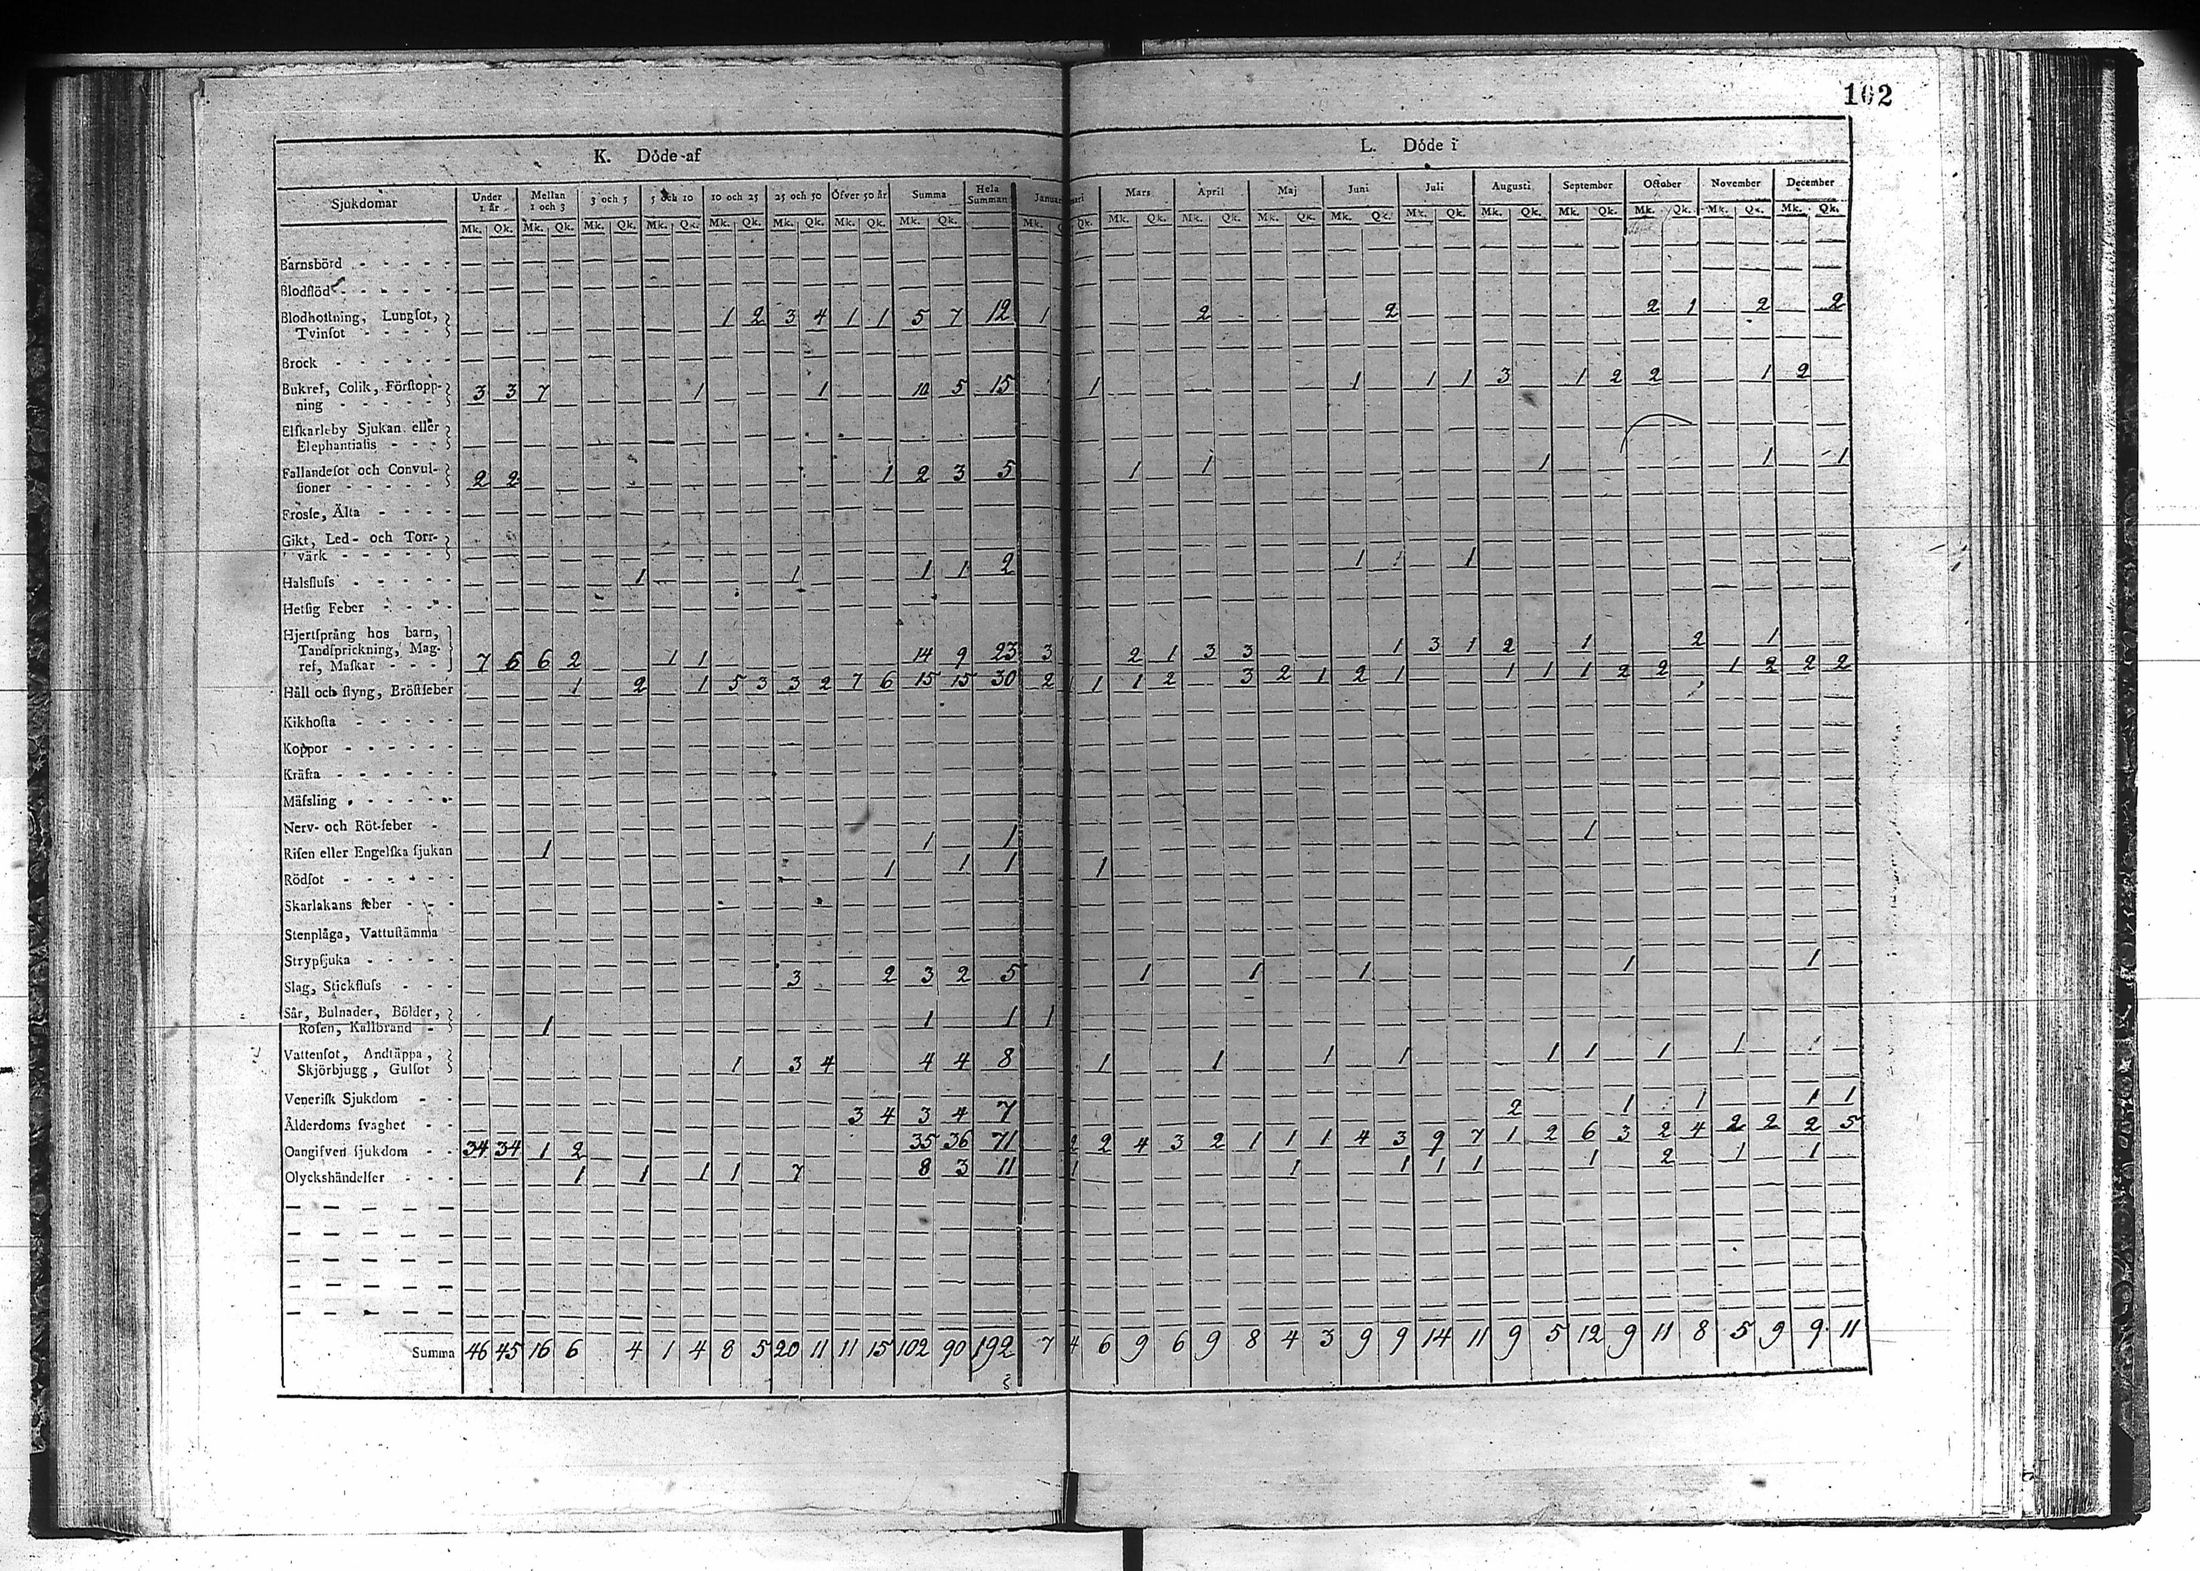 102
K. Döde af
L. Döde i
Sjukdomar Under 1 år Mellan 1 och 3 3 och 5 5 och 10 10 och 25 25 och 50 Öfver 50 år Summa Hela Summan Januari Mars April Maj Juni Juli Augusti September October November December
Mk. Qk. Mk. Qk. Mk. Qk. Mk. Qk. Mk. Qk. Mk. Qk. Mk. Qk. Mk. Qk. Mk. Qk. Mk. Qk. Mk. Qk. Mk. Qk. Mk. Qk. Mk. Qk. Mk. Qk. Mk. Qk. Mk. Qk. Mk. Qk. Mk. Qk.
Barnsbörd
Blodflöd
Blodhostning, Lungsot, 1 2 3 4 1 1 5 7 12 1 2 2 2 1 2 2
Tvinsot
Brock
Bukref, Colik, Förstopp- 3 3 7 1 1 10 5 15 1 1 1 1 3 1 2 2 1 2
ning
Elfkarleby Sjukan eller
Elephantiasis
Fallandesot och Convul- 2 2 1 2 3 5 1 1 1 1 1
sioner
Frossa, Älta
Gikt, Led- och Torr-
värk
Halsfluss 1 1 1 1 2 1 1
Hetsig Feber
Hjertsprång hos barn,
Tandsprickning, Mag-
ref, Maskar 7 6 6 2 1 1 14 9 23 3 2 1 3 3 1 3 1 2 1 2 1
Håll och styng, Bröstfeber 1 2 1 5 3 3 2 7 6 15 15 30 2 1 1 2 3 2 1 2 1 1 1 1 2 2 1 2 2 2
Kikhosta
Koppor
Kräfta
Mässling
Nerv- och Röt-feber
Risen eller Engelska sjukan 1 1 1 1
Rödsot 1 1 1 1
Skarlakans feber
Stenplåga, Vattustämma
Strypsjuka
Slag, Stickfluss 3 2 3 2 5 1 1 1 1 1
Sår, Bulnader, Bölder,
Rosen, Kallbrand 1 1 1 1
Vattensot, Andtäppa,
Skjörbjugg, Gulsot 1 3 4 4 4 8 1 1 1 1 1 1 1 1
Venerisk Sjukdom
Ålderdoms svaghet 3 4 3 4 7 2 1 1 1 1
Oangifven sjukdom 34 34 1 2 35 36 71 2 2 4 3 2 1 1 1 4 3 9 7 1 2 6 3 2 4 2 2 2 5
Olyckshändelser 1 1 1 1 7 8 3 11 1 1 1 1 1 1 2 1 1
Summa 46 45 16 6 4 1 4 8 5 20 11 11 15 102 90 192 7 4 6 9 6 9 8 4 3 9 9 14 11 9 5 12 9 11 8 5 9 9 11